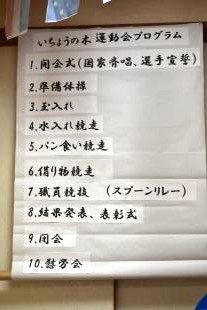 いちょうの木 運動会プログラム
1.開会式(国家斉唱、選手宣誓)
2.準備体操
3.玉入れ
4.水入れ競走
5.パン食い競走
6.借り物競走
7.職員競技 (スプーンリレー)
8.結果発表、表彰式
9.閉会
10.慰労会